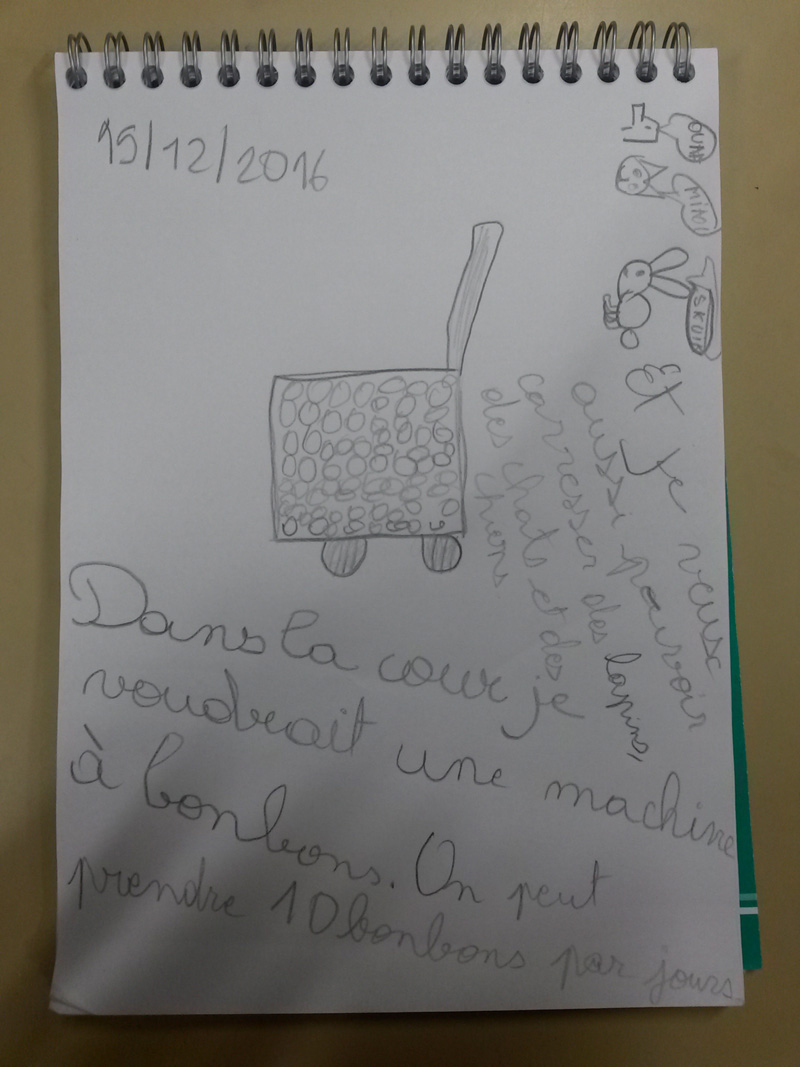 15/12/2016
Dans la cour je
voudrait une machine
à bonbons. On peut
prendre 10 bonbons par jours
Et je veux
aussi pouvoir
carresser des lapins,
des chats et des
chiens